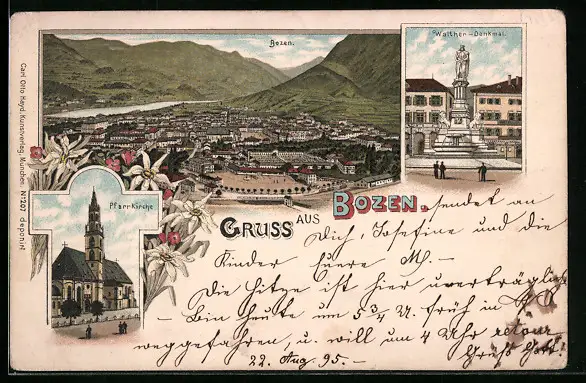 Bozen.
Walther-Denkmal.
Carl Otto Hayd, Kunstverlag, München. No 207 deponirt
Pfarrkirche
GRUSS AUS BOZEN.
sendet an
Dich, Josefine und die
Kinder Euere M. —
Die Hitze ist hier unerträglich
— Bin heute um 5 3/4 U. früh in
weggefahren, u. will um 4 Uhr retour
Grüß Gott!
22. Aug. 95. —